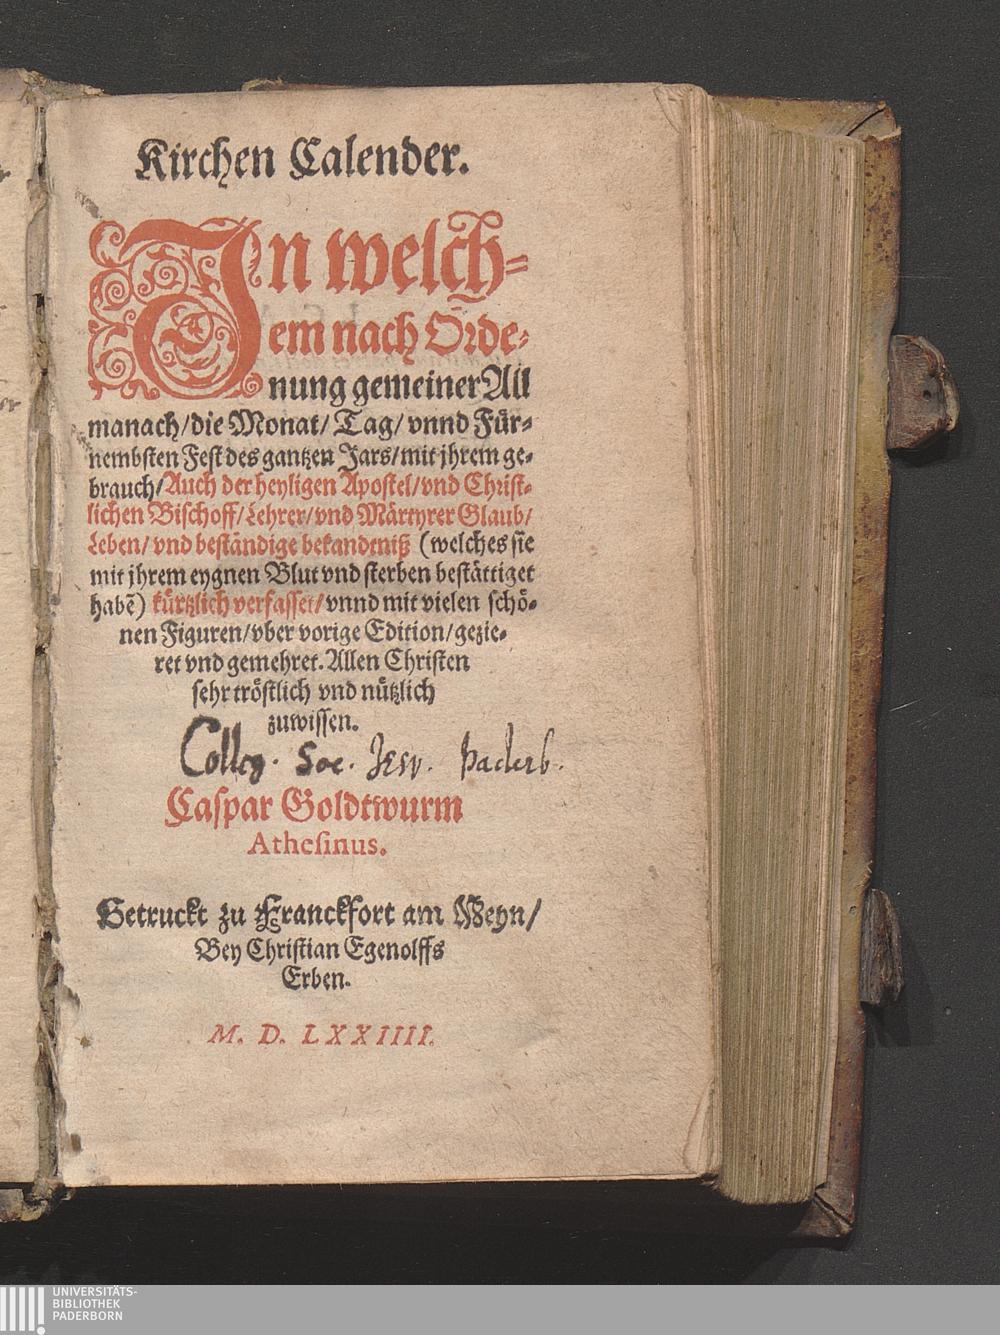 Kirchen Calender.
In welch-
em nach Orde-
nung gemeiner All
manach/ die Monat/ Tag/ vnnd Für-
nembsten Fest des gantzen Jars/ mit jhrem ge-
brauch/ Auch der heyligen Apostel/ vnd Christ-
lichen Bischoff/ Lehrer/ vnd Märtyrer Glaub/
Leben/ vnd beständige bekandtniß (welches sie
mit jhrem eygnen Blut vnd sterben bestättiget
habẽ) kürtzlich verfasset/ vnnd mit vielen schö-
nen Figuren/ vber vorige Edition/ gezie-
ret vnd gemehret. Allen Christen
sehr tröstlich vnd nützlich
zuwissen.
Colleg. Soc. Jesu. Paderb.
Caspar Goldtwurm
Athesinus.
Getruckt zu Franckfort am Meyn/
Bey Christian Egenolffs
Erben.
M. D. LXXIIII.
UNIVERSITÄTS-
BIBLIOTHEK
PADERBORN